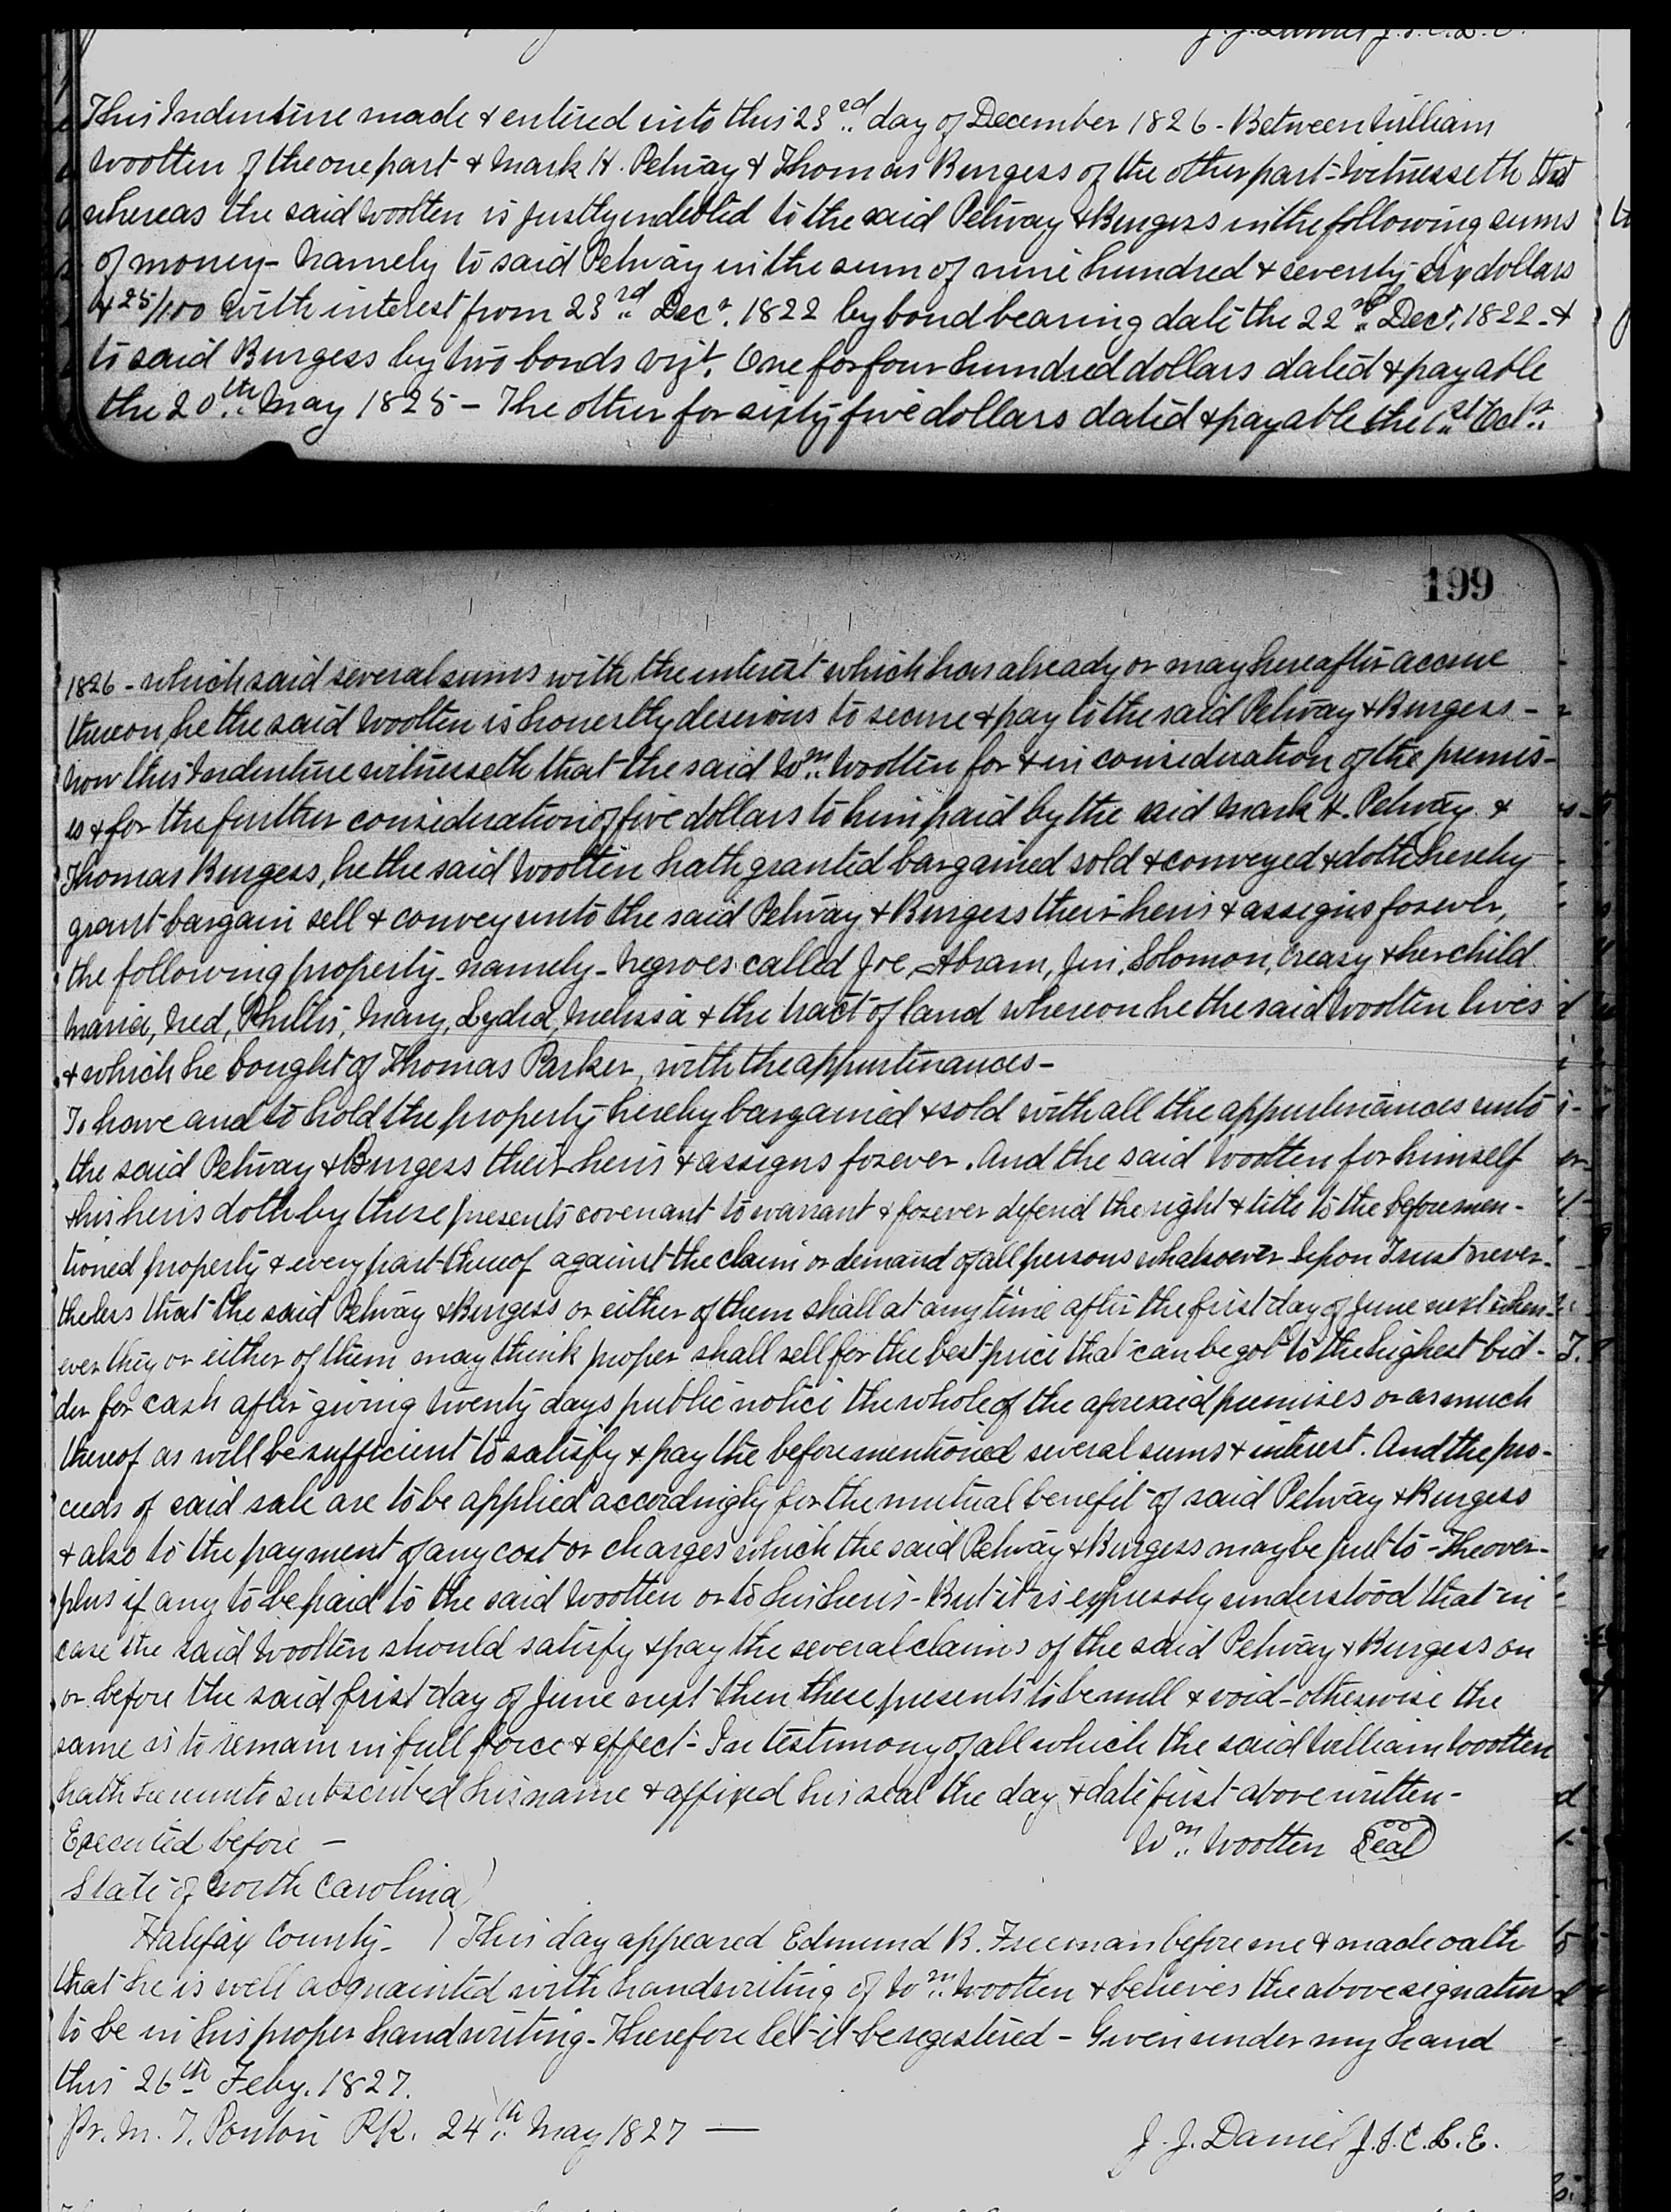 J. J. Daniel J. S. C. L. E.
This Indenture made & entered into this 23rd day of December 1826 - Between William
Wootten of the one part & Mark H. Petway & Thomas Burgess of the other part - Witnesseth that
whereas the said Wootten is justly indebted to the said Petway & Burgess in the following sums
of money - Namely to said Petway in the sum of nine hundred & seventy six dollars
& 25/100 with interest from 23rd Decr. 1822 by bond bearing date the 22nd Decr. 1822 - &
to said Burgess by two bonds vizt. One for four hundred dollars dated & payable
the 20th May 1825 - The other for sixty five dollars dated & payable the 1st Octr.
199
1826 - which said several sums with the interest which has already or may hereafter accrue
thereon, he the said Wootten is honestly desirous to secure & pay to the said Petway & Burgess -
Now this Indenture witnesseth that the said Wm. Wootten for & in consideration of the premis-
es & for the further consideration of five dollars to him paid by the said Mark H. Petway &
Thomas Burgess, he the said Wootten hath granted bargained sold & conveyed & doth hereby
grant bargain sell & convey unto the said Petway & Burgess their heirs & assigns forever,
the following property - namely - Negroes called Joe, Abram, Jin, Solomon, Creasy & her child
Maria, Ned, Phillis, Mary, Lydia, Melissa & the tract of land whereon he the said Wootten lives
& which he bought of Thomas Parker, with the appurtenances -
To have and to hold the property hereby bargained & sold with all the appurtenances unto
the said Petway & Burgess their heirs & assigns forever. And the said Wootten for himself
& his heirs doth by these presents covenant to warrant & forever defend the right & title to the beforemen-
tioned property & every part thereof against the claim or demand of all persons whatsoever Upon Trust never-
theless that the said Petway & Burgess or either of them shall at any time after the first day of June next when-
ever they or either of them may think proper shall sell for the best price that can be got to the highest bid-
der for cash after giving twenty days public notice the whole of the aforesaid premises or as much
thereof as will be sufficient to satisfy & pay the beforementioned several sums & interest. And the pro-
ceeds of said sale are to be applied accordingly for the mutual benefit of said Petway & Burgess
& also to the payment of any cost or charges which the said Petway & Burgess may be put to - The over-
plus if any to be paid to the said Wootten or to his heirs - But it is expressly understood that in
case the said Wootten should satisfy & pay the several claims of the said Petway & Burgess on
or before the said first day of June next then these presents to be null & void - otherwise the
same is to remain in full force & effect - In testimony of all which the said William Wootten
hath hereunto subscribed his name & affixed his seal the day & date first above written -
Executed before - Wm. Wootten Seal
State of North Carolina)
Halifax County - ) This day appeared Edmund B. Freeman before me & made oath
that he is well acquainted with handwriting of Wm. Wootten & believes the above signature
to be in his proper handwriting - Therefore let it be registered - Given under my hand
this 26th Feby. 1827.
Pr. M. T. Ponton P.R. 24th May 1827 — J. J. Daniel J. S. C. L. E.